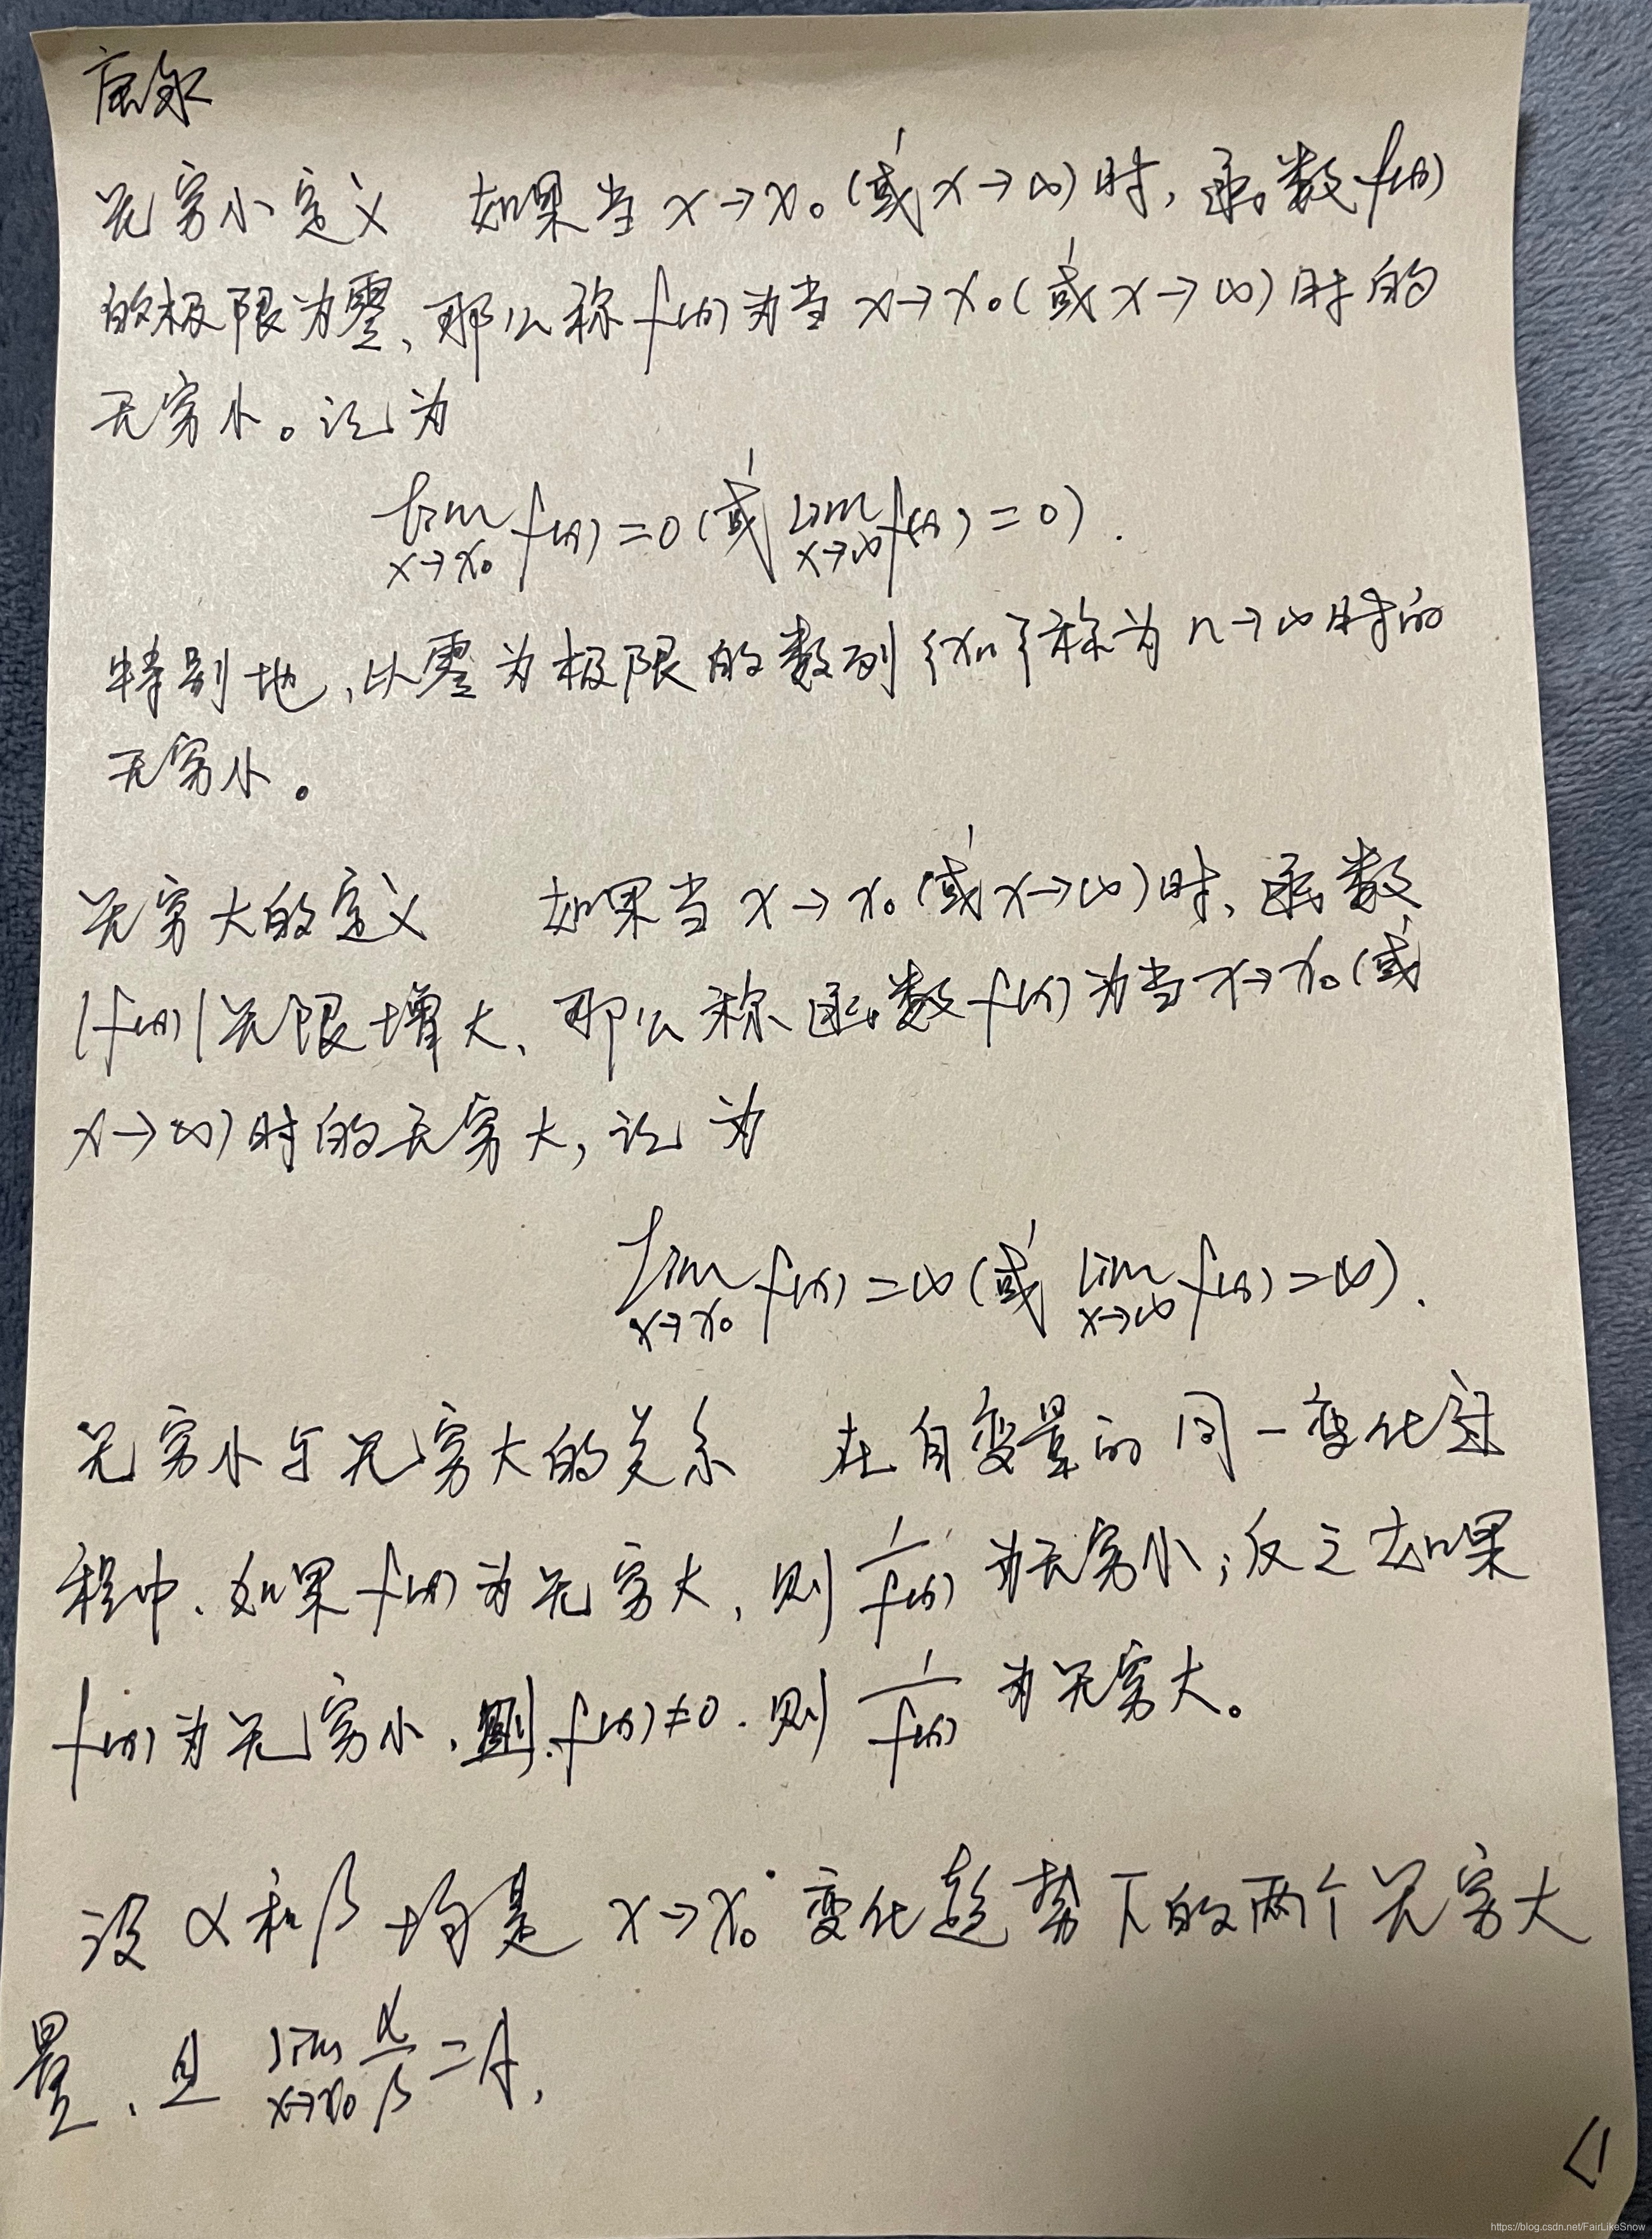 无穷小定义 如果当 x→x₀(或x→∞)时,函数f(x)
的极限为零,那么称f(x)为当x→x₀(或x→∞)时的
无穷小。记为
lim f(x)=0(或 lim f(x)=0).
x→x₀ x→∞
特别地,以零为极限的数列{xn}称为n→∞时的
无穷小。
无穷大的定义 如果当x→x₀(或x→∞)时,函数
|f(x)|无限增大,那么称函数f(x)为当x→x₀(或
x→∞)时的无穷大,记为
lim f(x)=∞(或 lim f(x)=∞).
x→x₀ x→∞
无穷小与无穷大的关系 在自变量的同一变化过
程中,如果f(x)为无穷大,则 1/f(x) 为无穷小;反之如果
f(x)为无穷小,且f(x)≠0.则 1/f(x) 为无穷大。
设α和β均是 x→x₀ 变化趋势下的两个无穷大
量,且 lim α/β =A,
x→x₀
<1
https://blog.csdn.net/FairLikeSnow